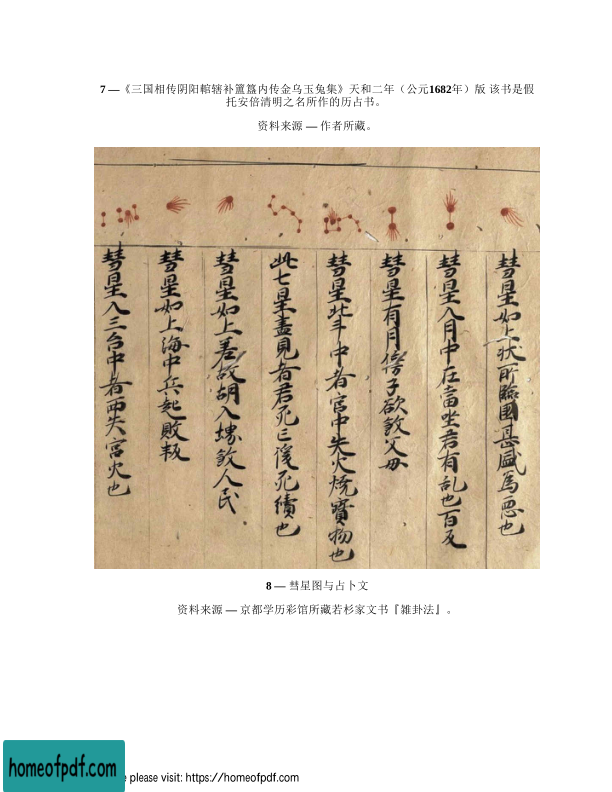 7 —《三国相传阴阳輨辖补簠簋内传金乌玉兔集》天和二年（公元1682年）版 该书是假
托安倍清明之名所作的历占书。
资料来源 — 作者所藏。
彗星如上状所臨國甚盛為惡也
彗星入月中在富坐君有乱也百
彗星有月傍子欲父母
彗星北斗中者宮中失火燒寳物也
此七星盡見者君死三死續也
彗星如上差故胡入人民
彗星如上海中兵起敗
彗星入三台中者西失宮火也
8 — 彗星图与占卜文
资料来源 — 京都学历彩馆所藏若杉家文书『雑卦法』。
homeofpdf.com
please visit: https://homeofpdf.com